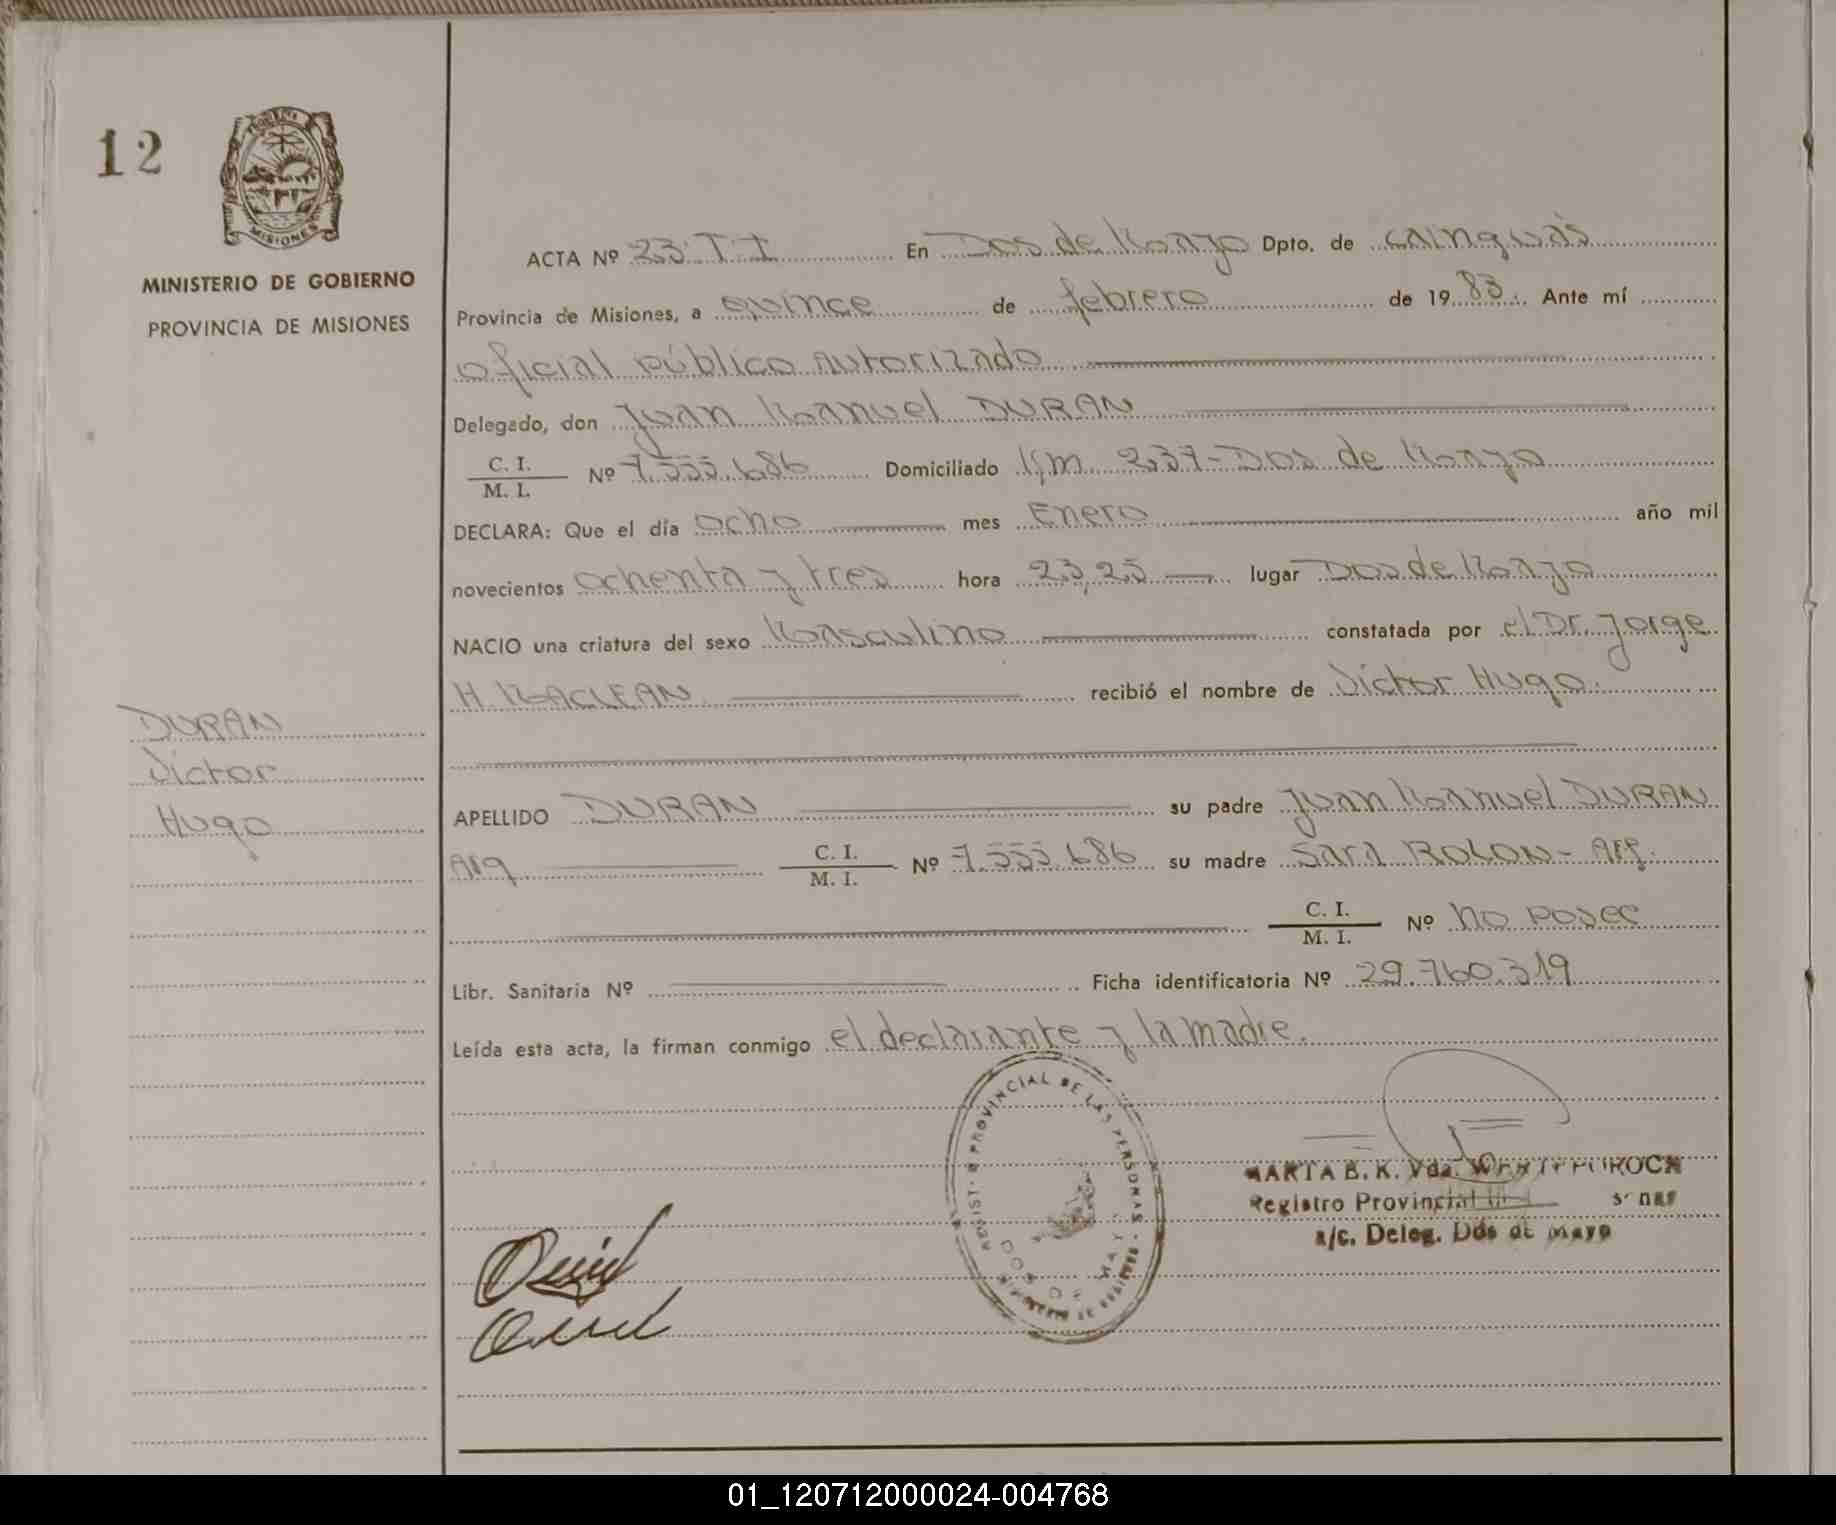 12
MISIONES
MINISTERIO DE GOBIERNO
PROVINCIA DE MISIONES
DURAN
Victor
Hugo
ACTA Nº 23. T. I En Dos de Mayo Dpto. de cainguás
Provincia de Misiones, a quince de febrero de 1983. Ante mí
oficial público autorizado
Delegado, don Juan Manuel DURAN
C. I.
M. I. Nº 7.555.686 Domiciliado Km 237-Dos de Mayo
DECLARA: Que el día ocho mes Enero año mil
novecientos ochenta y tres hora 23,25 lugar Dos de Mayo
NACIO una criatura del sexo Masculino constatada por el Dr. Jorge
H MACLEAN recibió el nombre de Victor Hugo.
APELLIDO DURAN su padre Juan Manuel DURAN
Arg C. I.
M. I. Nº 7.555.686 su madre Sara ROLON - Arg.
C. I.
M. I. Nº no posee
Libr. Sanitaria Nº Ficha identificatoria Nº 29.760.319
Leída esta acta, la firman conmigo el declarante y la madre.
PROVINCIAL DE LAS PERSONAS
DOS DE MAYO
MARTA B. K. Vda.
Registro Provincial
a/c. Deleg. Dos de mayo
01_120712000024-004768